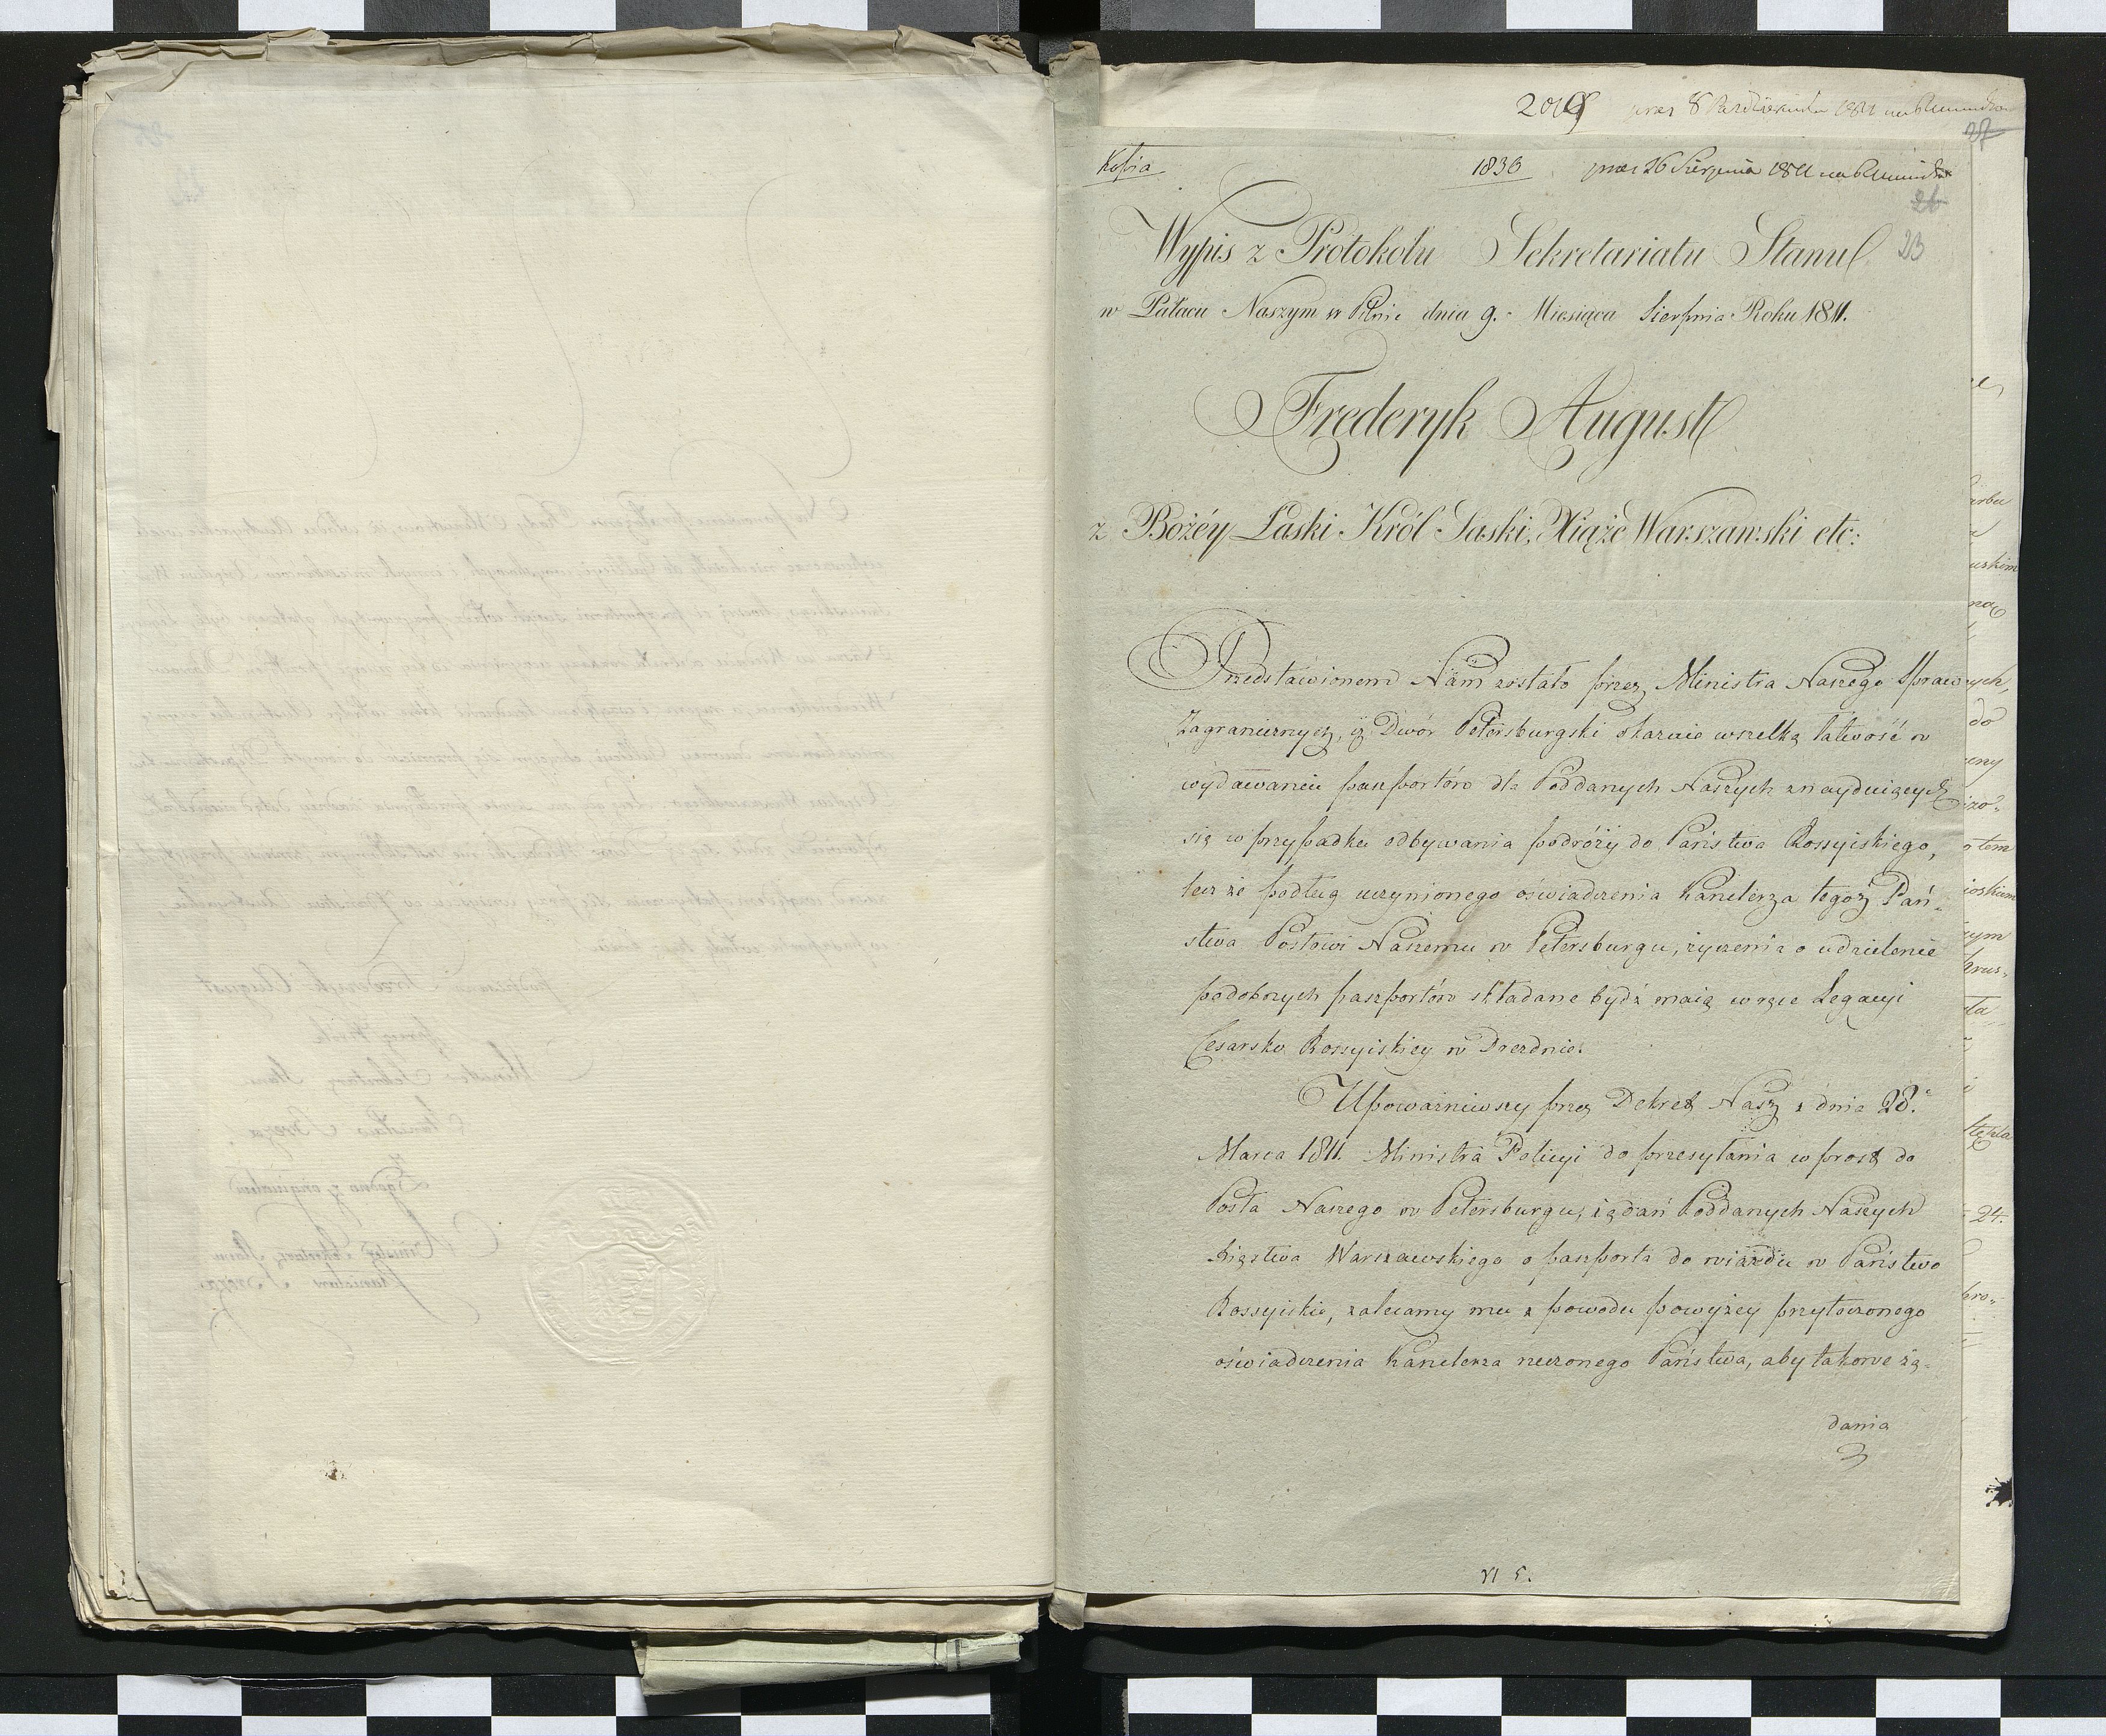 2019
8 Października 1811
Kopia
1836
prez 26 Sierpnia 1811
27
26
23
Wypis z Protokołu Sekretariatu Stanu
w Pałacu Naszym w Pilnic dnia 9. Miesiąca Sierpnia Roku 1811.
Frederyk August
z Bożéy Łaski Król Saski, Xiąże Warszawski etc:
Przedstawionem Nam zostało przez Ministra Naszego Spraw
Zagranicznych, iż Dwór Petersburgski okazuie wszelką łatwość w
wydawaniu paszportów dla Poddanych Naszych znayduiących
się w przypadku odbywania podróży do Państwa Rossyiskiego,
lecz że podług uczynionego oświadczenia Kanclerza tegoż Pań-
stwa Posłowi Naszemu w Petersburgu, życzenia o udzielenie
podobnych paszportów składane bydź maią w ręce Legacyi
Cesarsko Rossyiskiey w Dreznie.
Upoważniwszy przez Dekret Nasz z dnia 28.
Marca 1811. Ministra Policyi do przesyłania wprost do
Posła Naszego w Petersburgu, żądań Poddanych Naszych
Xięstwa Warszawskiego o paszporta do wiazdu w Państwo
Rossyiskie, zalecamy mu z powodu powyżey przytoczonego
oświadczenia Kanclerza rzeczonego Państwa, aby takowe żą-
dania
VI 5.